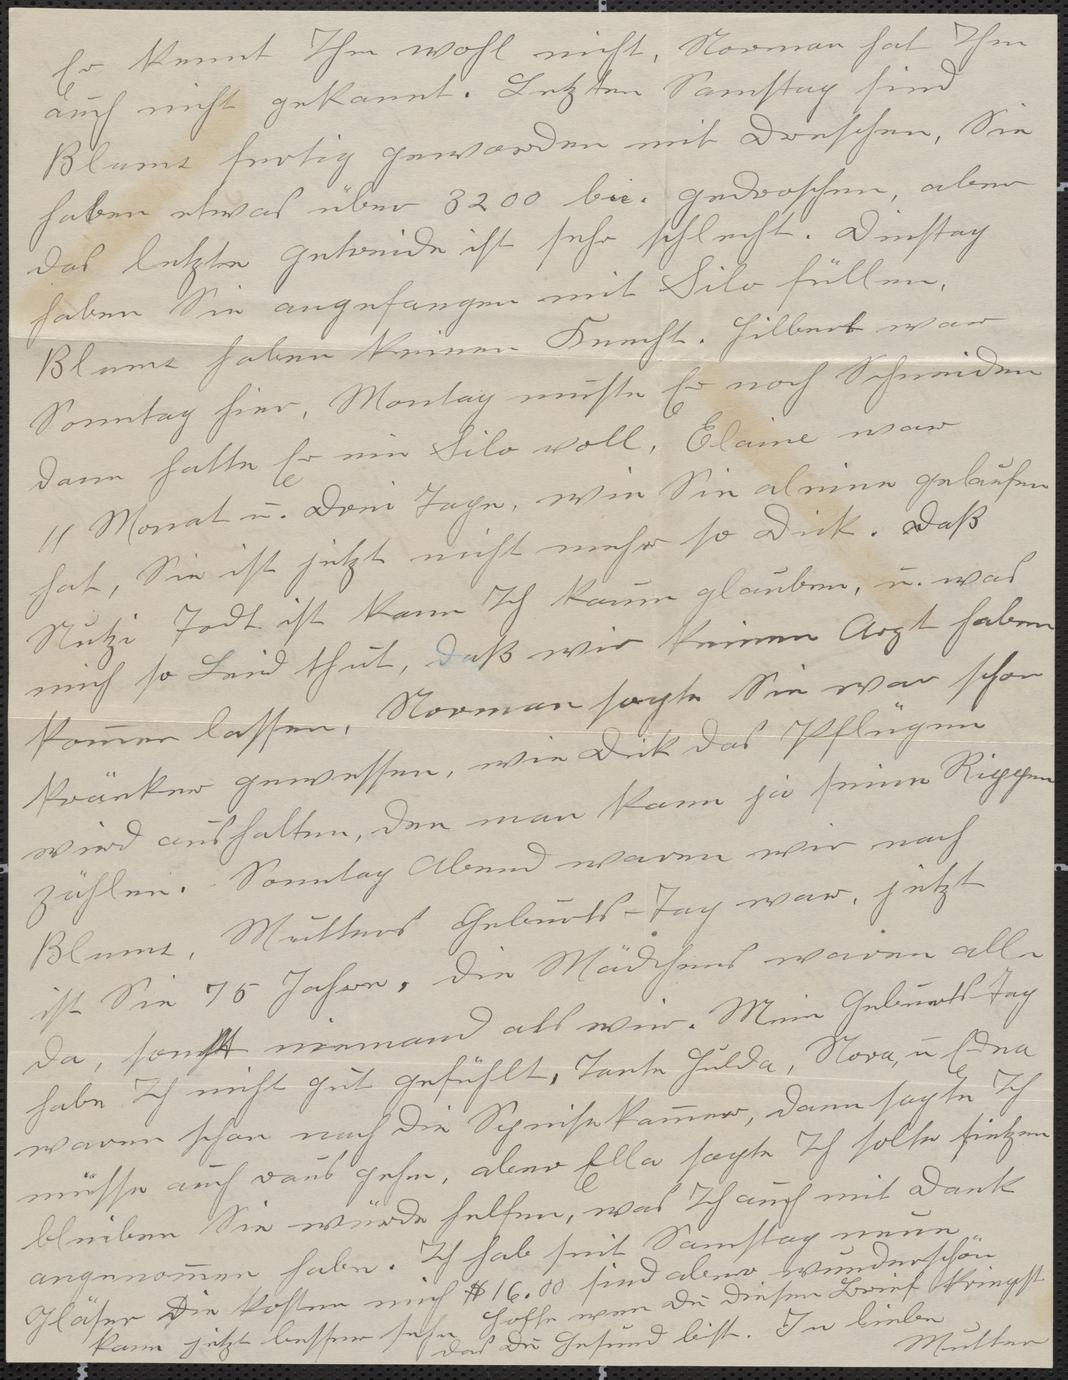 Er kennt Ihn wohl nicht, Norman hat Ihn
auch nicht gekannt. Letzten Samstag sind
Blums fertig geworden mit Dreschen, Sie
haben etwas über 3200 bu. gedroschen, aber
das letzte Getreide ist sehr schlecht. Dinstag
haben Sie angefangen mit Silo füllen,
Blums haben keinen Knecht. Hilbert war
Sonntag hier, Montag muste Er noch Schneiden
dann hatte Er ein Silo voll, Elaine war
11 Monat u. Drei Tage, wie Sie aleine gelaufen
hat, Sie ist jetzt nicht mehr so Dick. Daß
Nutzi Todt ist kann Ich kaum glauben, u. was
mich so Leid thut, daß wir keinen Arzt haben
kom̄en lassen, Norman sagte Sie war schon
kränker gewessen, wie Dick das Pflügen
wird aushalten, den man kann ja seine Rippen
zählen. Sonntag Abend waren wir nach
Blums, Mutters Geburts-Tag war, jetzt
ist Sie 75 Jahre, die Mädchens waren alle
da, sonst niemand als wir. Mein Geburts-Tag
habe Ich nicht gut gefühlt, Tante Hulda, Nora, u Edna
waren schon nach die Speisekam̄er, dann sagte Ich
müsse auch raus gehe, aber Ella sagte Ich solte sietzen
bleiben Sie würde helfen, was Ich auch mit Dank
angenom̄en habe. Ich hab seit Samstag neue
Gläser Die kosten mich $16.00 sind aber wunderschön
kann jetzt besser sehn Hoffe wen Du Diesen Brief kriegst
das Du Gesund bist. In liebe
Mutter